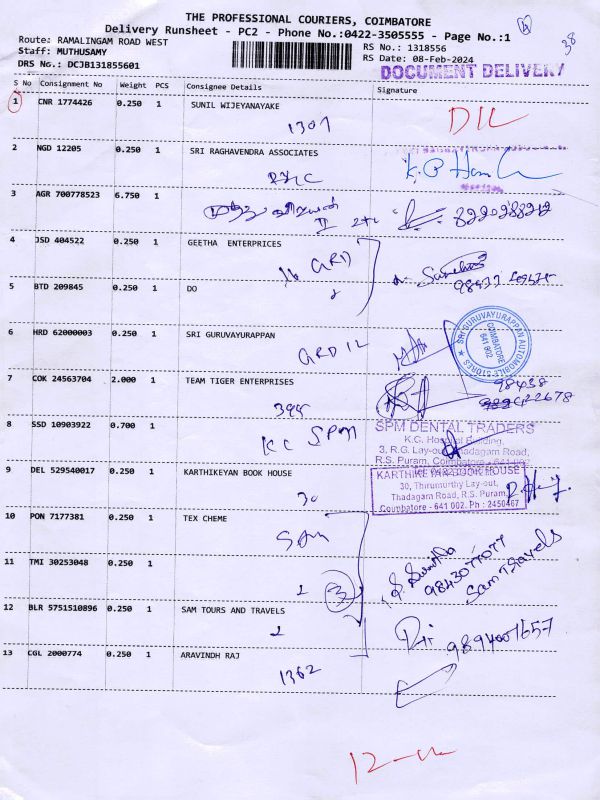 THE PROFESSIONAL COURIERS, COIMBATORE
Delivery Runsheet - PC2 - Phone No.:0422-3505555 - Page No.:1
Route: RAMALINGAM ROAD WEST
RS No.: 1318556
38
Staff: MUTHUSAMY
RS Date: 08-Feb-2024
DRS No.: DCJB131855601
DOCUMENT DELIVERY
S No Consignment No Weight PCS Consignee Details Signature
1 CNR 1774426 0.250 1 SUNIL WIJEYANAYAKE
1307
2 NGD 12205 0.250 1 SRI RAGHAVENDRA ASSOCIATES
3 AGR 700778523 6.750 1
4 JSD 404522 0.250 1 GEETHA ENTERPRICES
16 GRD
5 BTD 209845 0.250 1 DO
6 HRD 62000003 0.250 1 SRI GURUVAYURAPPAN
SRI GURUVAYURAPPAN AUTOMOBILE STORES
COIMBATORE
641 002
7 COK 24563704 2.000 1 TEAM TIGER ENTERPRISES
394
98438
22678
8 SSD 10903922 0.700 1
KC SPM
SPM DENTAL TRADERS
K.G. Hospital Building,
3, R.G. Lay-out, Thadagam Road,
R.S. Puram, Coimbatore - 641 002
9 DEL 529540017 0.250 1 KARTHIKEYAN BOOK HOUSE
30
KARTHIKEYAN BOOK HOUSE
30, Thirumurthy Lay-out,
Thadagam Road, R.S. Puram,
Coimbatore - 641 002. Ph : 2450467
10 PON 7177381 0.250 1 TEX CHEME
Sam
11 TMI 30253048 0.250 1
3
9843077077
Sam Travels
12 BLR 5751510896 0.250 1 SAM TOURS AND TRAVELS
9894001657
13 CGL 2000774 0.250 1 ARAVINDH RAJ
1362